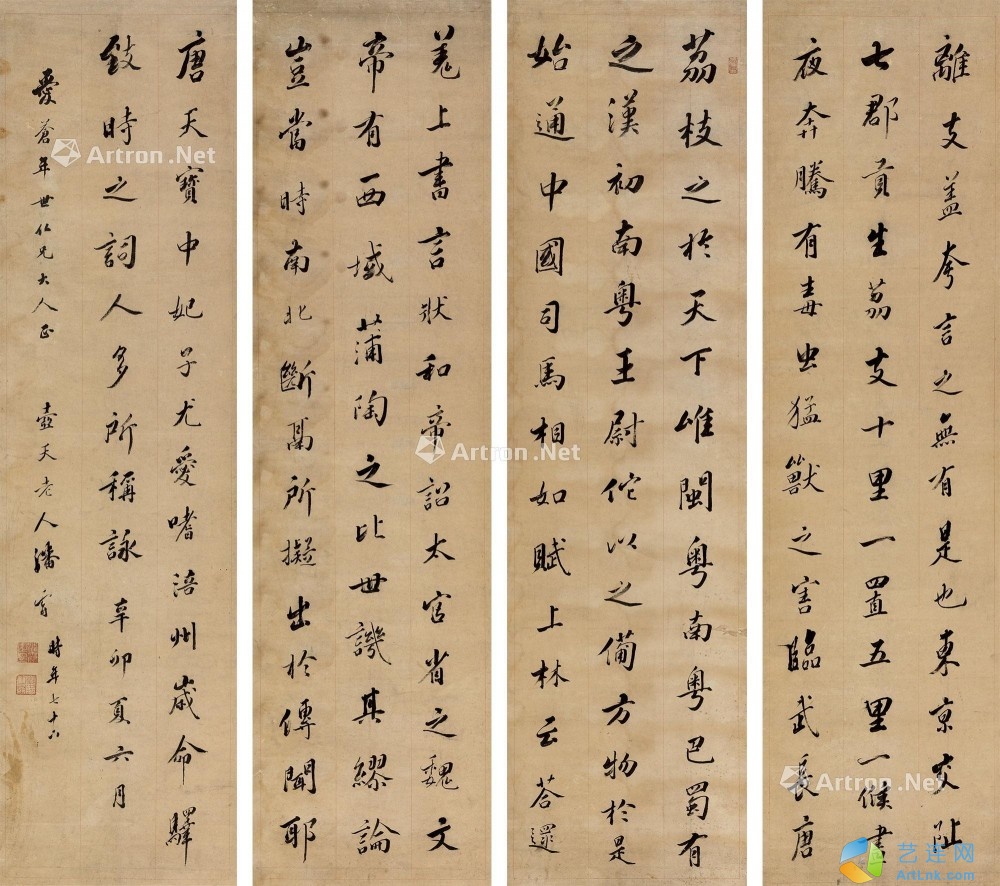 離支蓋夸言之無有是也東京交阯
七郡貢生荔支十里一置五里一候晝
夜奔騰有毒虫猛獸之害臨武長唐
荔枝之於天下唯閩粵南粵巴蜀有
之漢初南粵王尉佗以之備方物於是
始通中國司馬相如賦上林云荅遝
羌上書言狀和帝詔太官省之魏文
帝有西域蒲陶之比世譏其繆論
豈當時南北斷鬲所擬出於傳聞耶
唐天寶中妃子尤愛嗜涪州歲命驛
致時之詞人多所稱詠 辛卯夏六月
愛蒼年世仁兄大人正 壺天老人潘霨 時年七十六
Artron.Net
Artron.Net
Artron.Net
Artron.Net
艺连网
ArtLnk.com